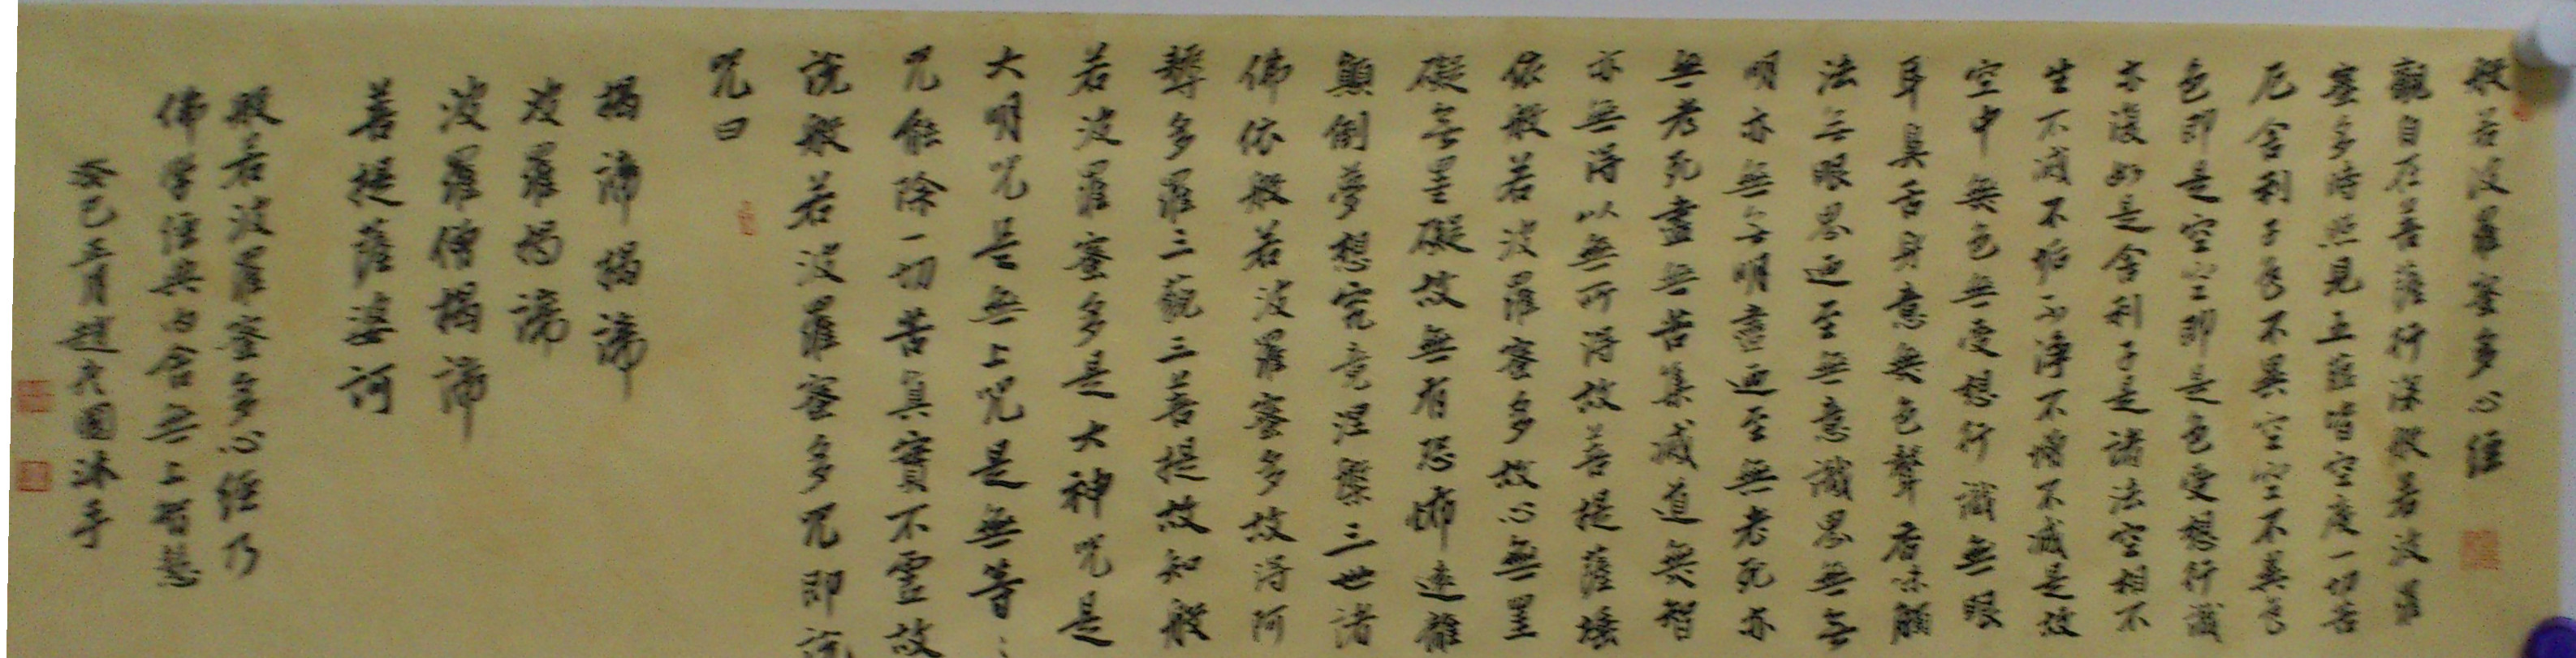 般若波羅蜜多心經
觀自在菩薩行深般若波羅
蜜多時照見五蘊皆空度一切苦
厄舍利子色不異空空不異色
色即是空空即是色受想行識
亦復如是舍利子是諸法空相不
生不滅不垢不淨不增不減是故
空中無色無受想行識無眼
耳鼻舌身意無色聲香味觸
法無眼界迺至無意識界無無
明亦無無明盡迺至無老死亦
無老死盡無苦集滅道無智
亦無得以無所得故菩提薩埵
依般若波羅蜜多故心無罣
礙無罣礙故無有恐怖遠離
顛倒夢想究竟涅槃三世諸
佛依般若波羅蜜多故得阿
耨多羅三藐三菩提故知般
若波羅蜜多是大神咒是
大明咒是無上咒是無等〻
咒能除一切苦真實不虛故
說般若波羅蜜多咒即說
咒曰
揭諦揭諦
波羅揭諦
波羅僧揭諦
菩提薩婆訶
般若波羅蜜多心經乃
佛學經典內含無上智慧
癸巳五月趙大國沐手